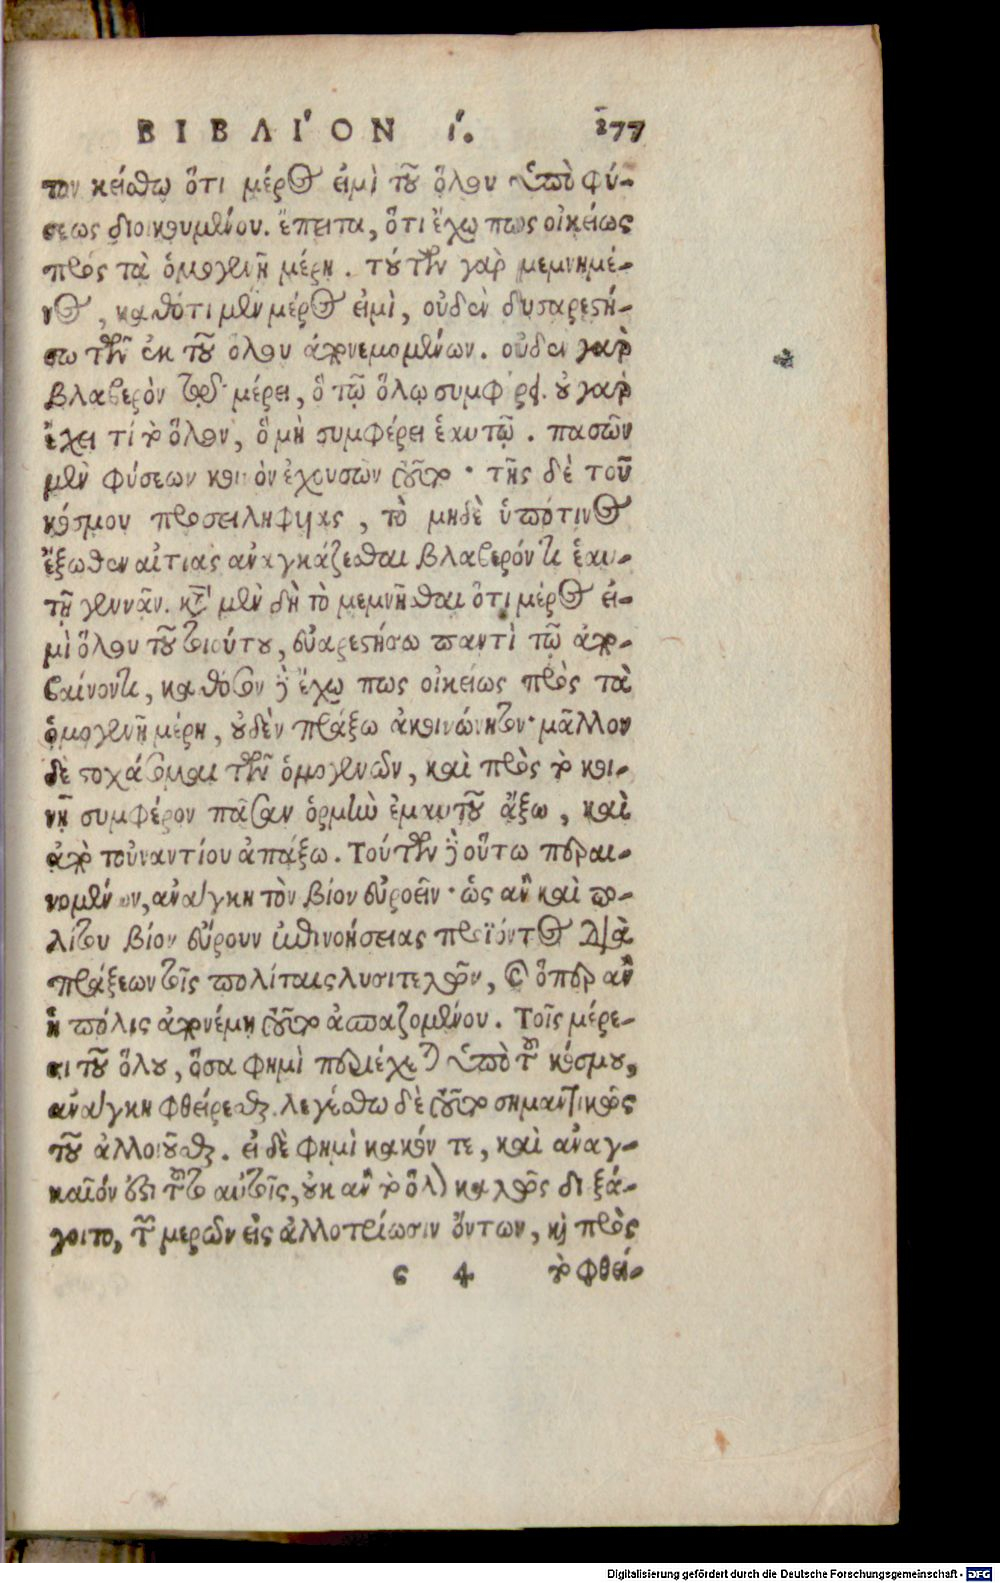 ΒΙΒΛΙ´ΟΝ ί. 277
τον κείσθω ὅτι μέρος εἰμὶ τοῦ ὅλου ὑπὸ φύ-
σεως διοικουμένου. ἔπειτα, ὅτι ἔχω πως οἰκείως
πρὸς τὰ ὁμογενῆ μέρη. τούτων γὰρ μεμνημέ-
νος, καθότι μὲν μέρος εἰμὶ, οὐδὲν δυσαρεστή-
σω τῶν ἐκ τοῦ ὅλου ἀπονεμομένων. οὐδὲν γὰρ
βλαβερὸν τῷ μέρει, ὃ τῷ ὅλῳ συμφέρει. οὐ γὰρ
ἔχει τί τὸ ὅλον, ὃ μὴ συμφέρει ἑαυτῷ. πασῶν
μὲν φύσεων κοινὸν ἐχουσῶν τοῦτο· τῆς δὲ τοῦ
κόσμου προσειληφυίας, τὸ μηδὲ ὑπότινος
ἔξωθεν αἰτίας ἀναγκάζεσθαι βλαβερόν τι ἑαυ-
τῇ γεννᾶν. κατὰ μὲν δὴ τὸ μεμνῆσθαι ὅτι μέρος εἰ-
μὶ ὅλου τοῦ τοιούτου, εὐαρεστήσω παντὶ τῷ ἀπο-
βαίνοντι, καθόσον δὲ ἔχω πως οἰκείως πρὸς τὰ
ὁμογενῆ μέρη, οὐδὲν πράξω ἀκοινώνητον· μᾶλλον
δὲ στοχάσομαι τῶν ὁμογενῶν, καὶ πρὸς τὸ κοι-
νῇ συμφέρον πᾶσαν ὁρμὴν ἐμαυτοῦ ἄξω, καὶ
ἀπὸ τοὐναντίου ἀπάξω. Τούτων δὲ οὕτω περαι-
νομένων, ἀνάγκη τὸν βίον εὐροεῖν· ὡς ἂν καὶ πο-
λίτου βίον εὔρουν ἐπινοήσειας προϊόντος διὰ
πράξεων τοῖς πολίταις λυσιτελῶν, καὶ ὅπερ ἂν
ἡ πόλις ἀπονέμῃ τοῦτο ἀσπαζομένου. Τοῖς μέρε-
σι τοῦ ὅλου, ὅσα φημὶ περιέχεται ὑπὸ τοῦ κόσμου,
ἀνάγκη φθείρεσθαι. λεγέσθω δὲ τοῦτο σημαντικῶς
τοῦ ἀλλοιοῦσθαι. εἰ δὲ φημὶ κακόν τε, καὶ ἀναγ-
καῖόν ἐστι τοῦτο αὐτοῖς, οὐκ ἂν τὸ ὅλον καλῶς διεξά-
γοιτο, τῶν μερῶν εἰς ἀλλοτρίωσιν ὄντων, καὶ πρὸς
ς 4 τὸ φθεί-
Digitalisierung gefördert durch die Deutsche Forschungsgemeinschaft - DFG